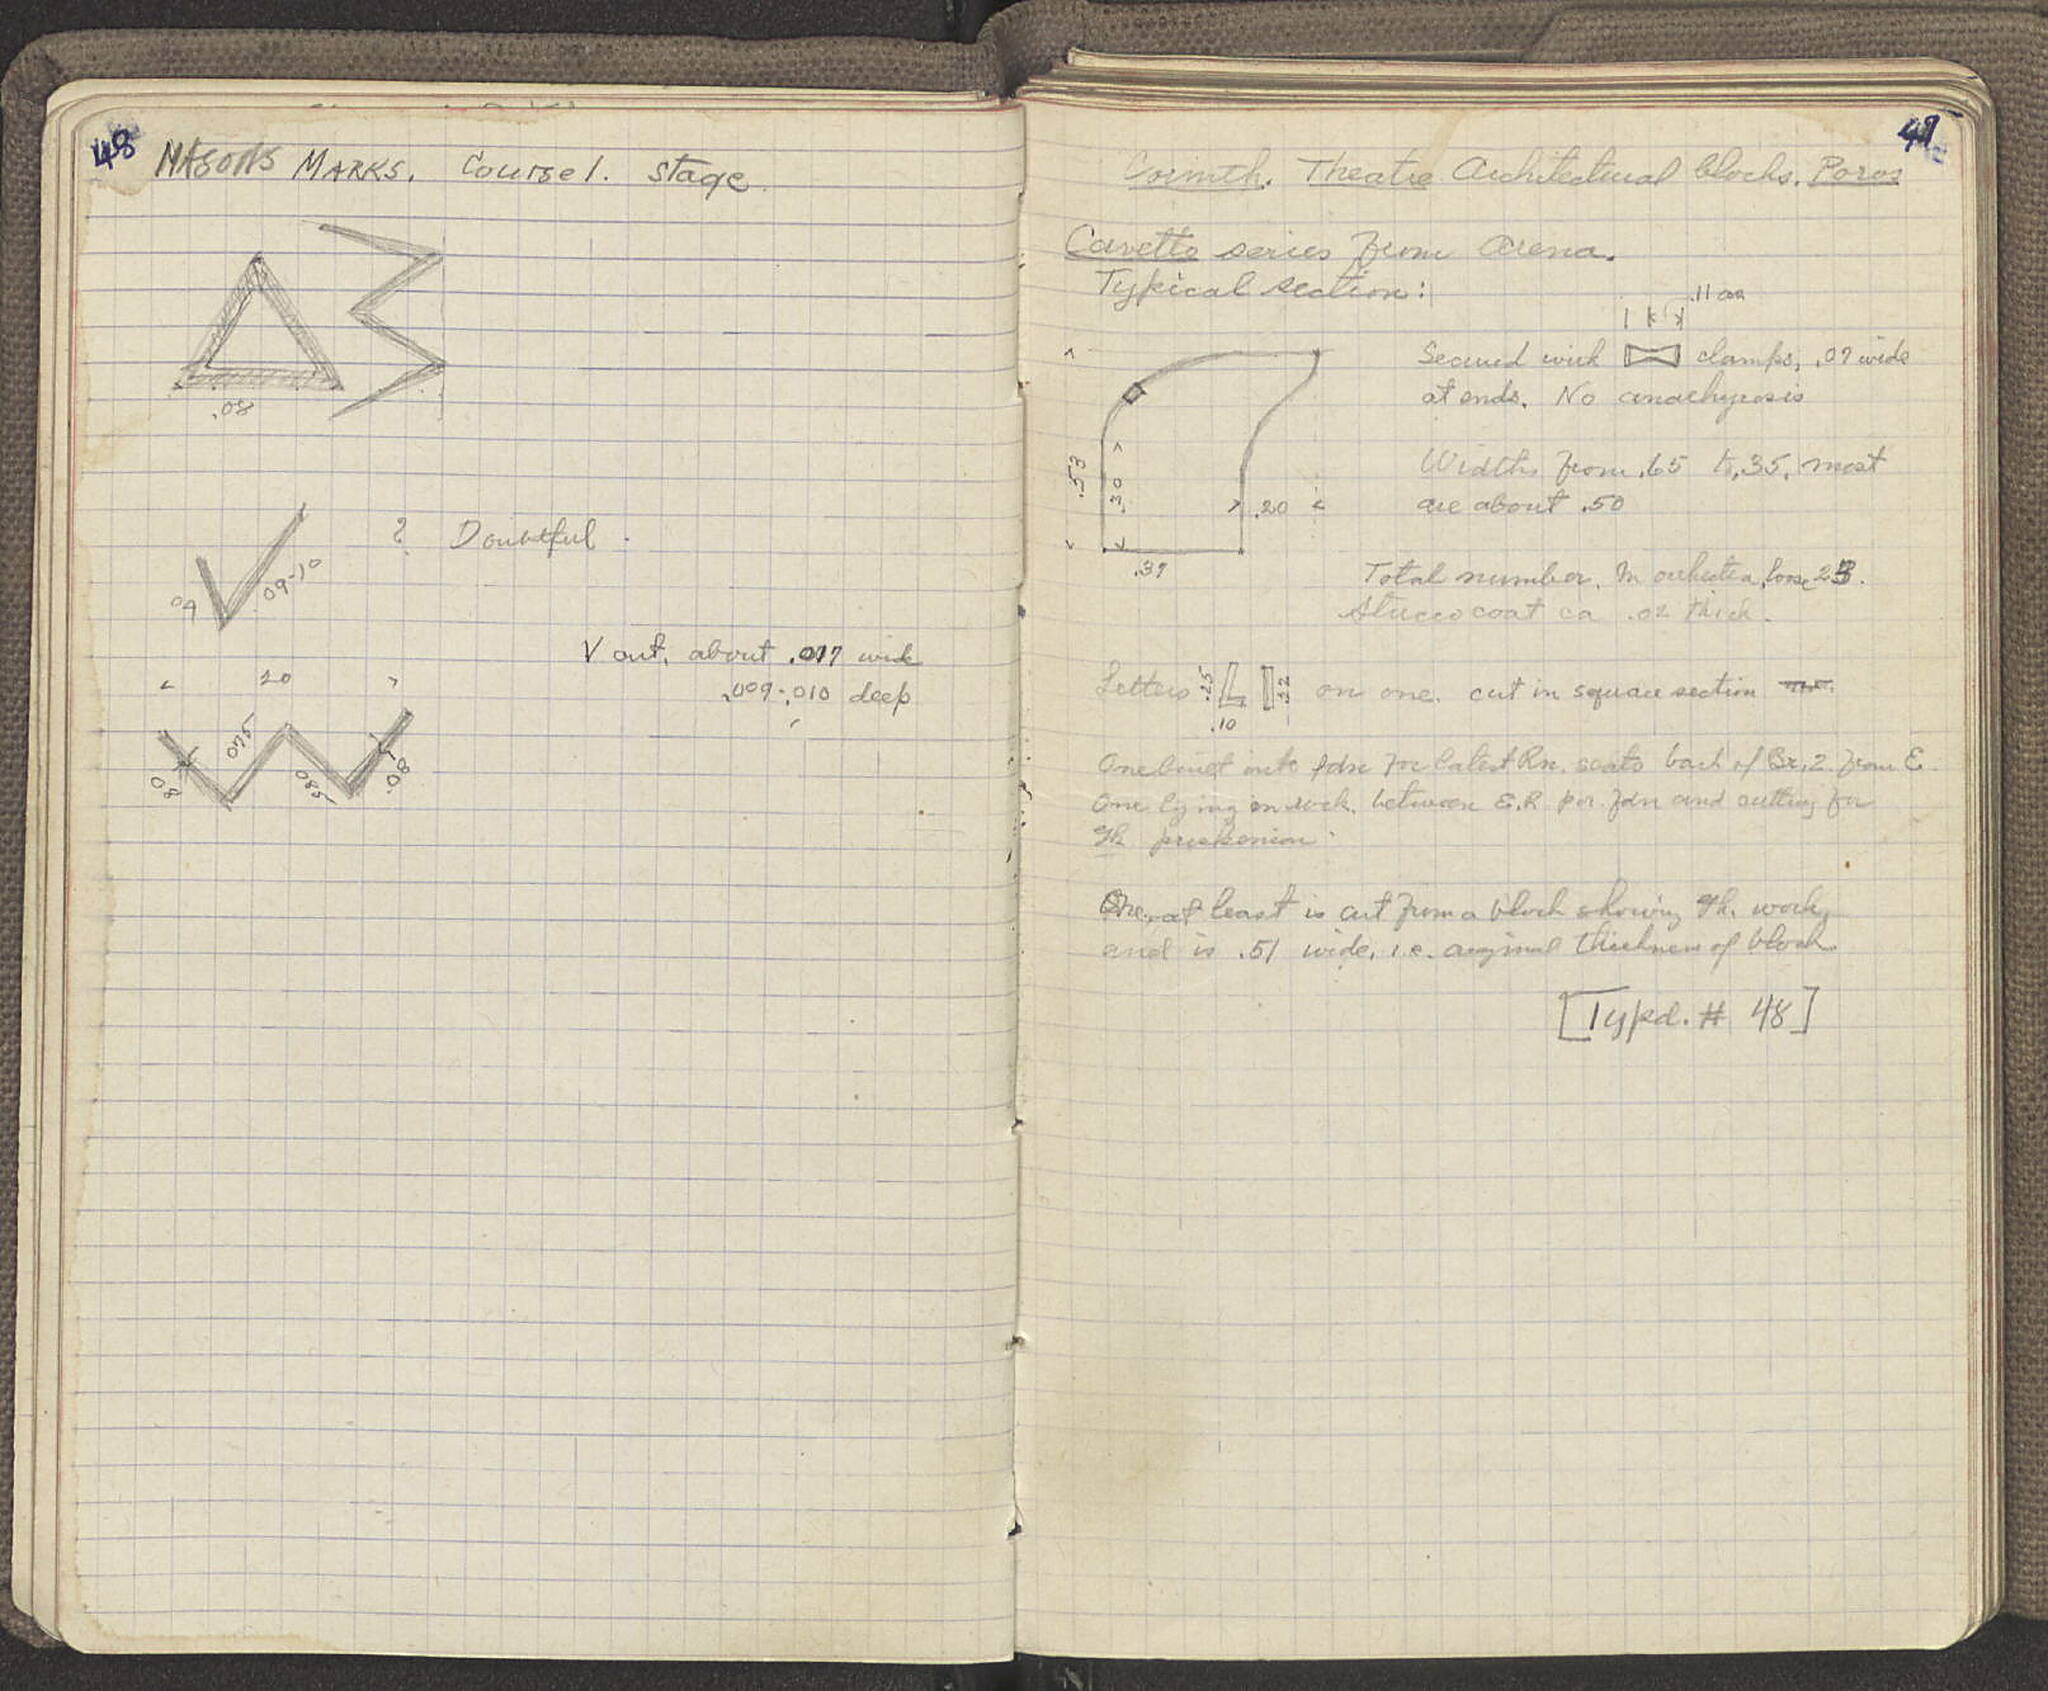 48
MASONS MARKS. Course 1. Stage.
.08
? Doubtful.
.09-10
V cut, about .017 wide
.009-.010 deep
20
.08 .075 .085 .08
49
Corinth. Theatre Architectural blocks. Poros
Cavetto series from Arena.
Typical section:
.11 on
Secured with clamps, .07 wide
at ends. No anathyrosis
.53
.30
.20
Widths from .65 to .35, most
are about .50
Total number. In orchestra, loose 23.
Stucco coat ca .02 thick.
Letters .25 .10 L I .22 on one. cut in square section
One built into fdn for latest Rn. seats back of 2 from E
One lying on rock. between E. R por. fdn and cutting for
Gk proskenion.
One, at least is cut from a block showing Gk. work,
and is .51 wide, i.e. original thickness of block
[Typd. # 48]